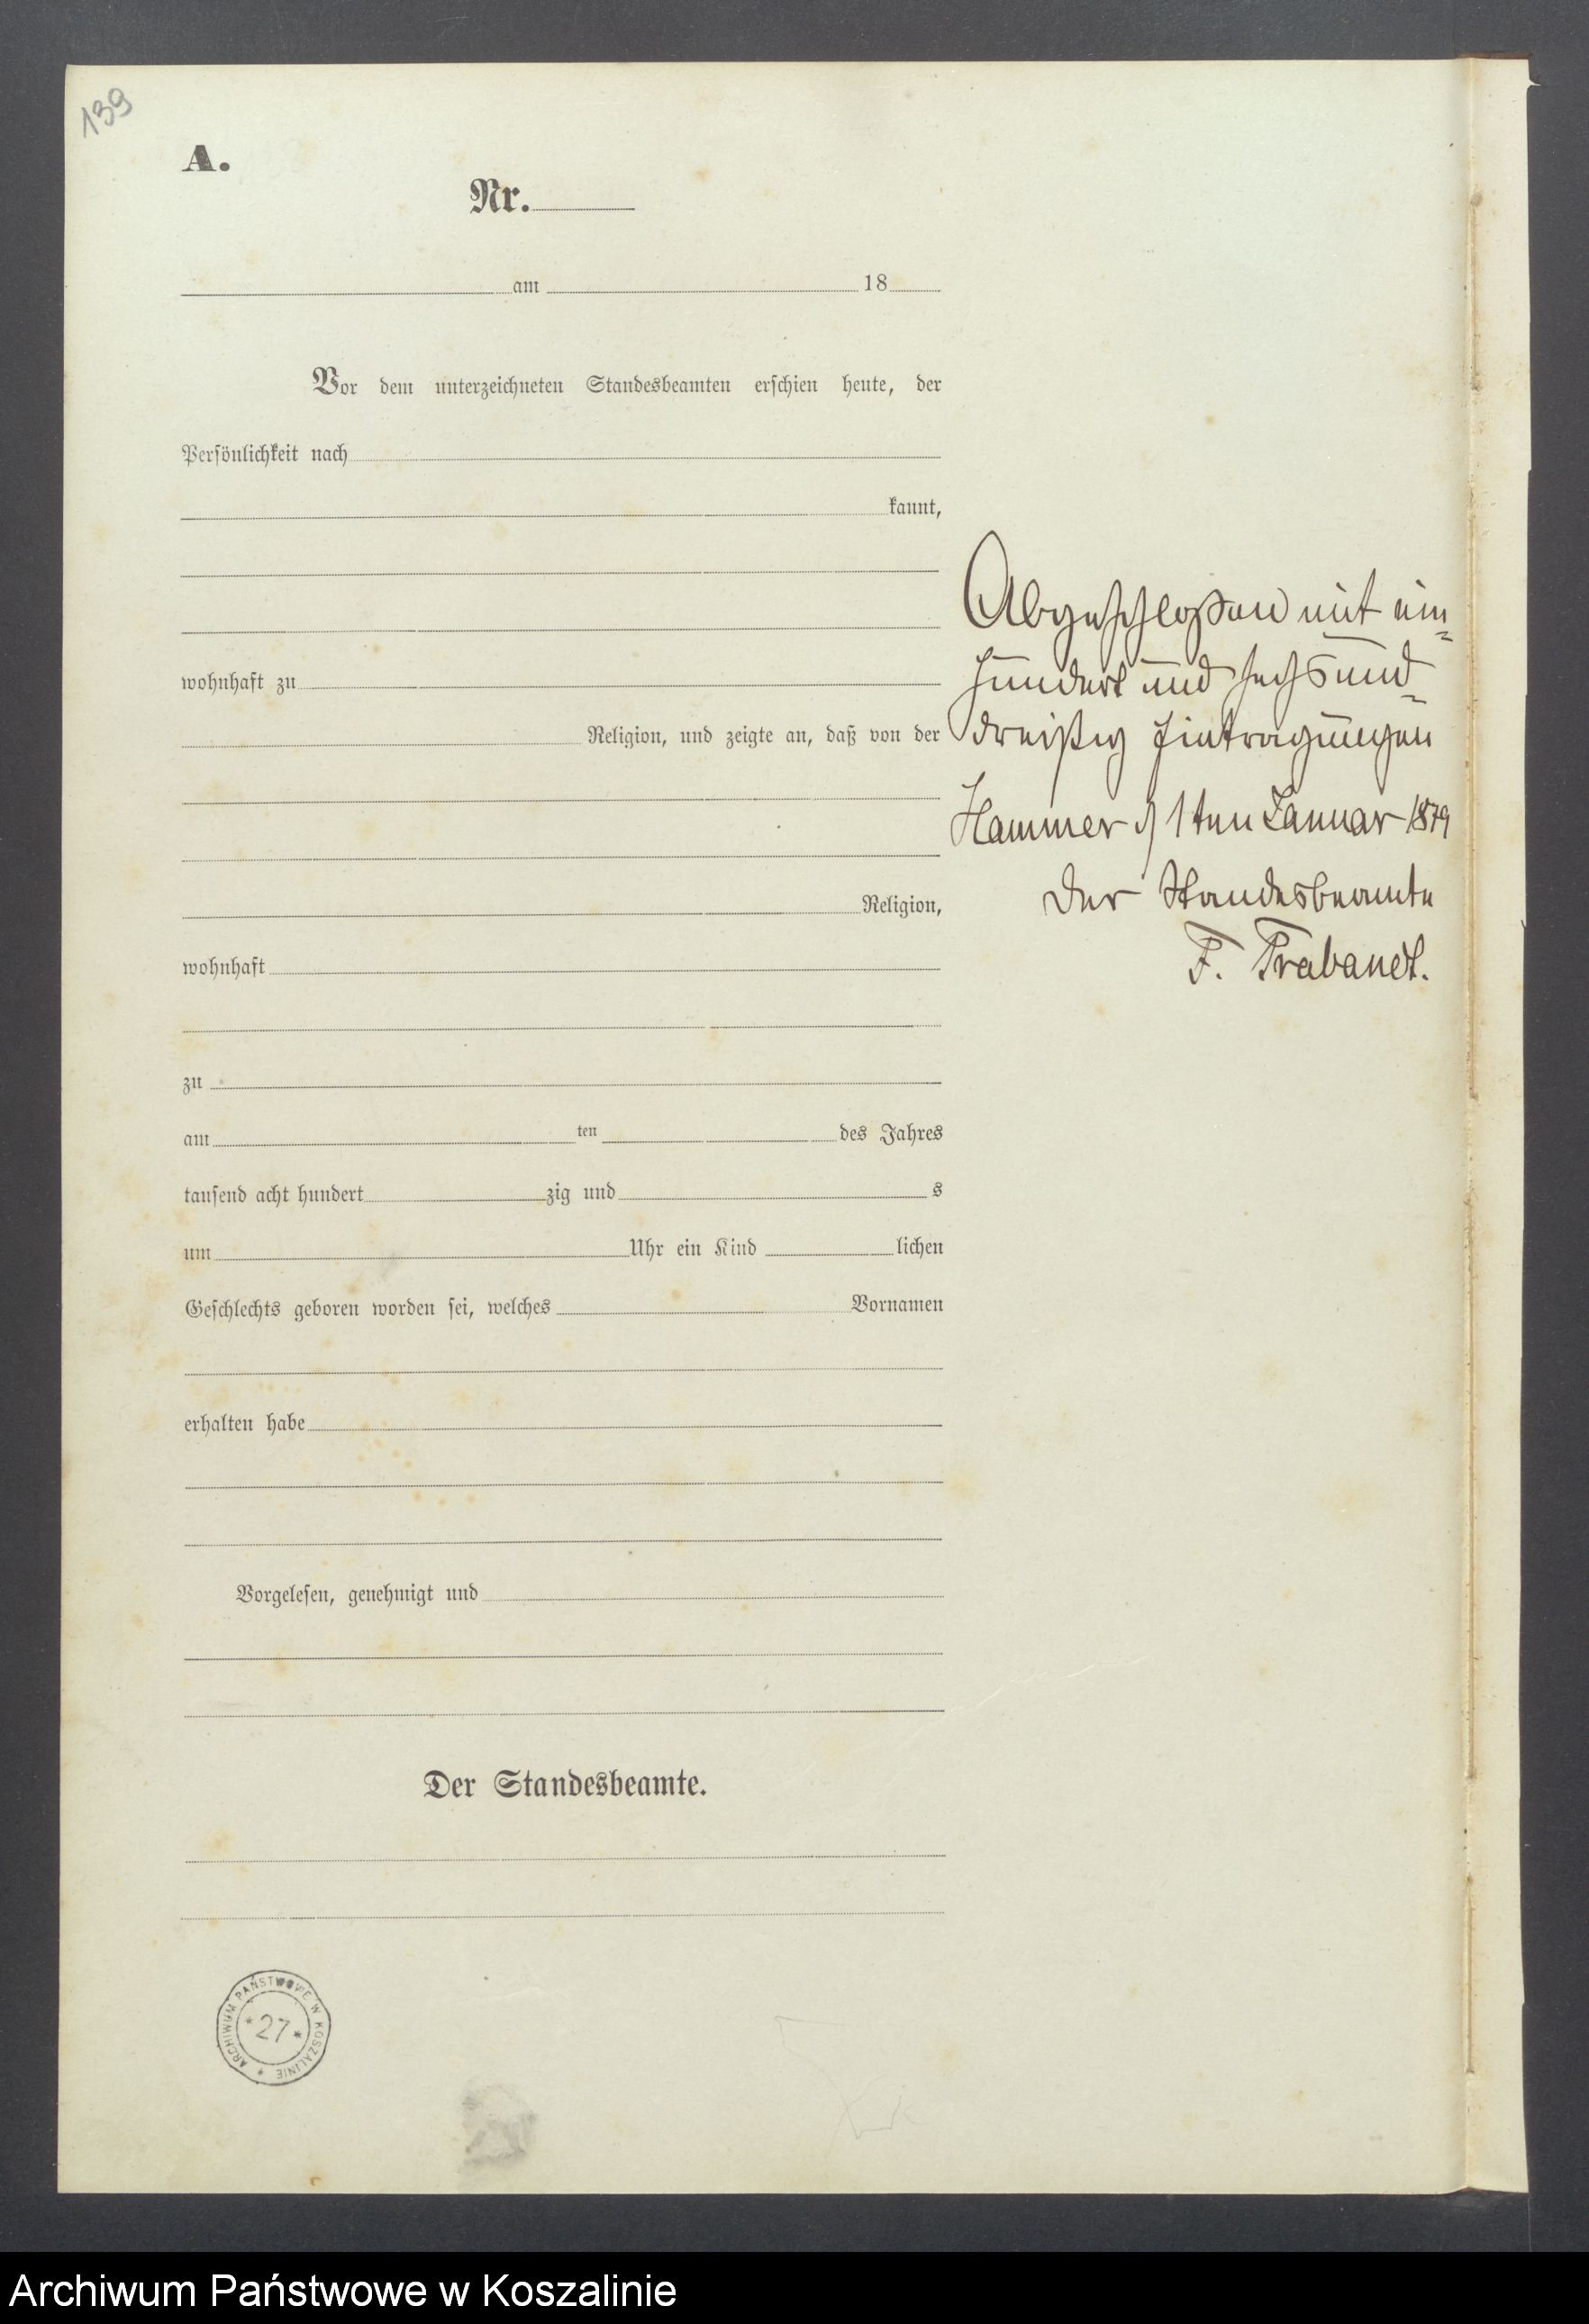 139
A.
Nr.
am 18
Vor dem unterzeichneten Standesbeamten erschien heute, der
Persönlichkeit nach
kannt,
wohnhaft zu
Religion, und zeigte an, daß von der
Religion,
wohnhaft
zu
am ten des Jahres
tausend acht hundert zig und s
um Uhr ein Kind lichen
Geschlechts geboren worden sei, welches Vornamen
erhalten habe
Vorgelesen, genehmigt und
Der Standesbeamte.
Abgeschloßen mit ein=
hundert und sechs und=
dreißig Eintragungen
Hammer d 1ten Januar 1879
Der Standesbeamte
F. Trabandt.
ARCHIWUM PAŃSTWOWE W KOSZALINIE
* 27 *
Archiwum Państwowe w Koszalinie